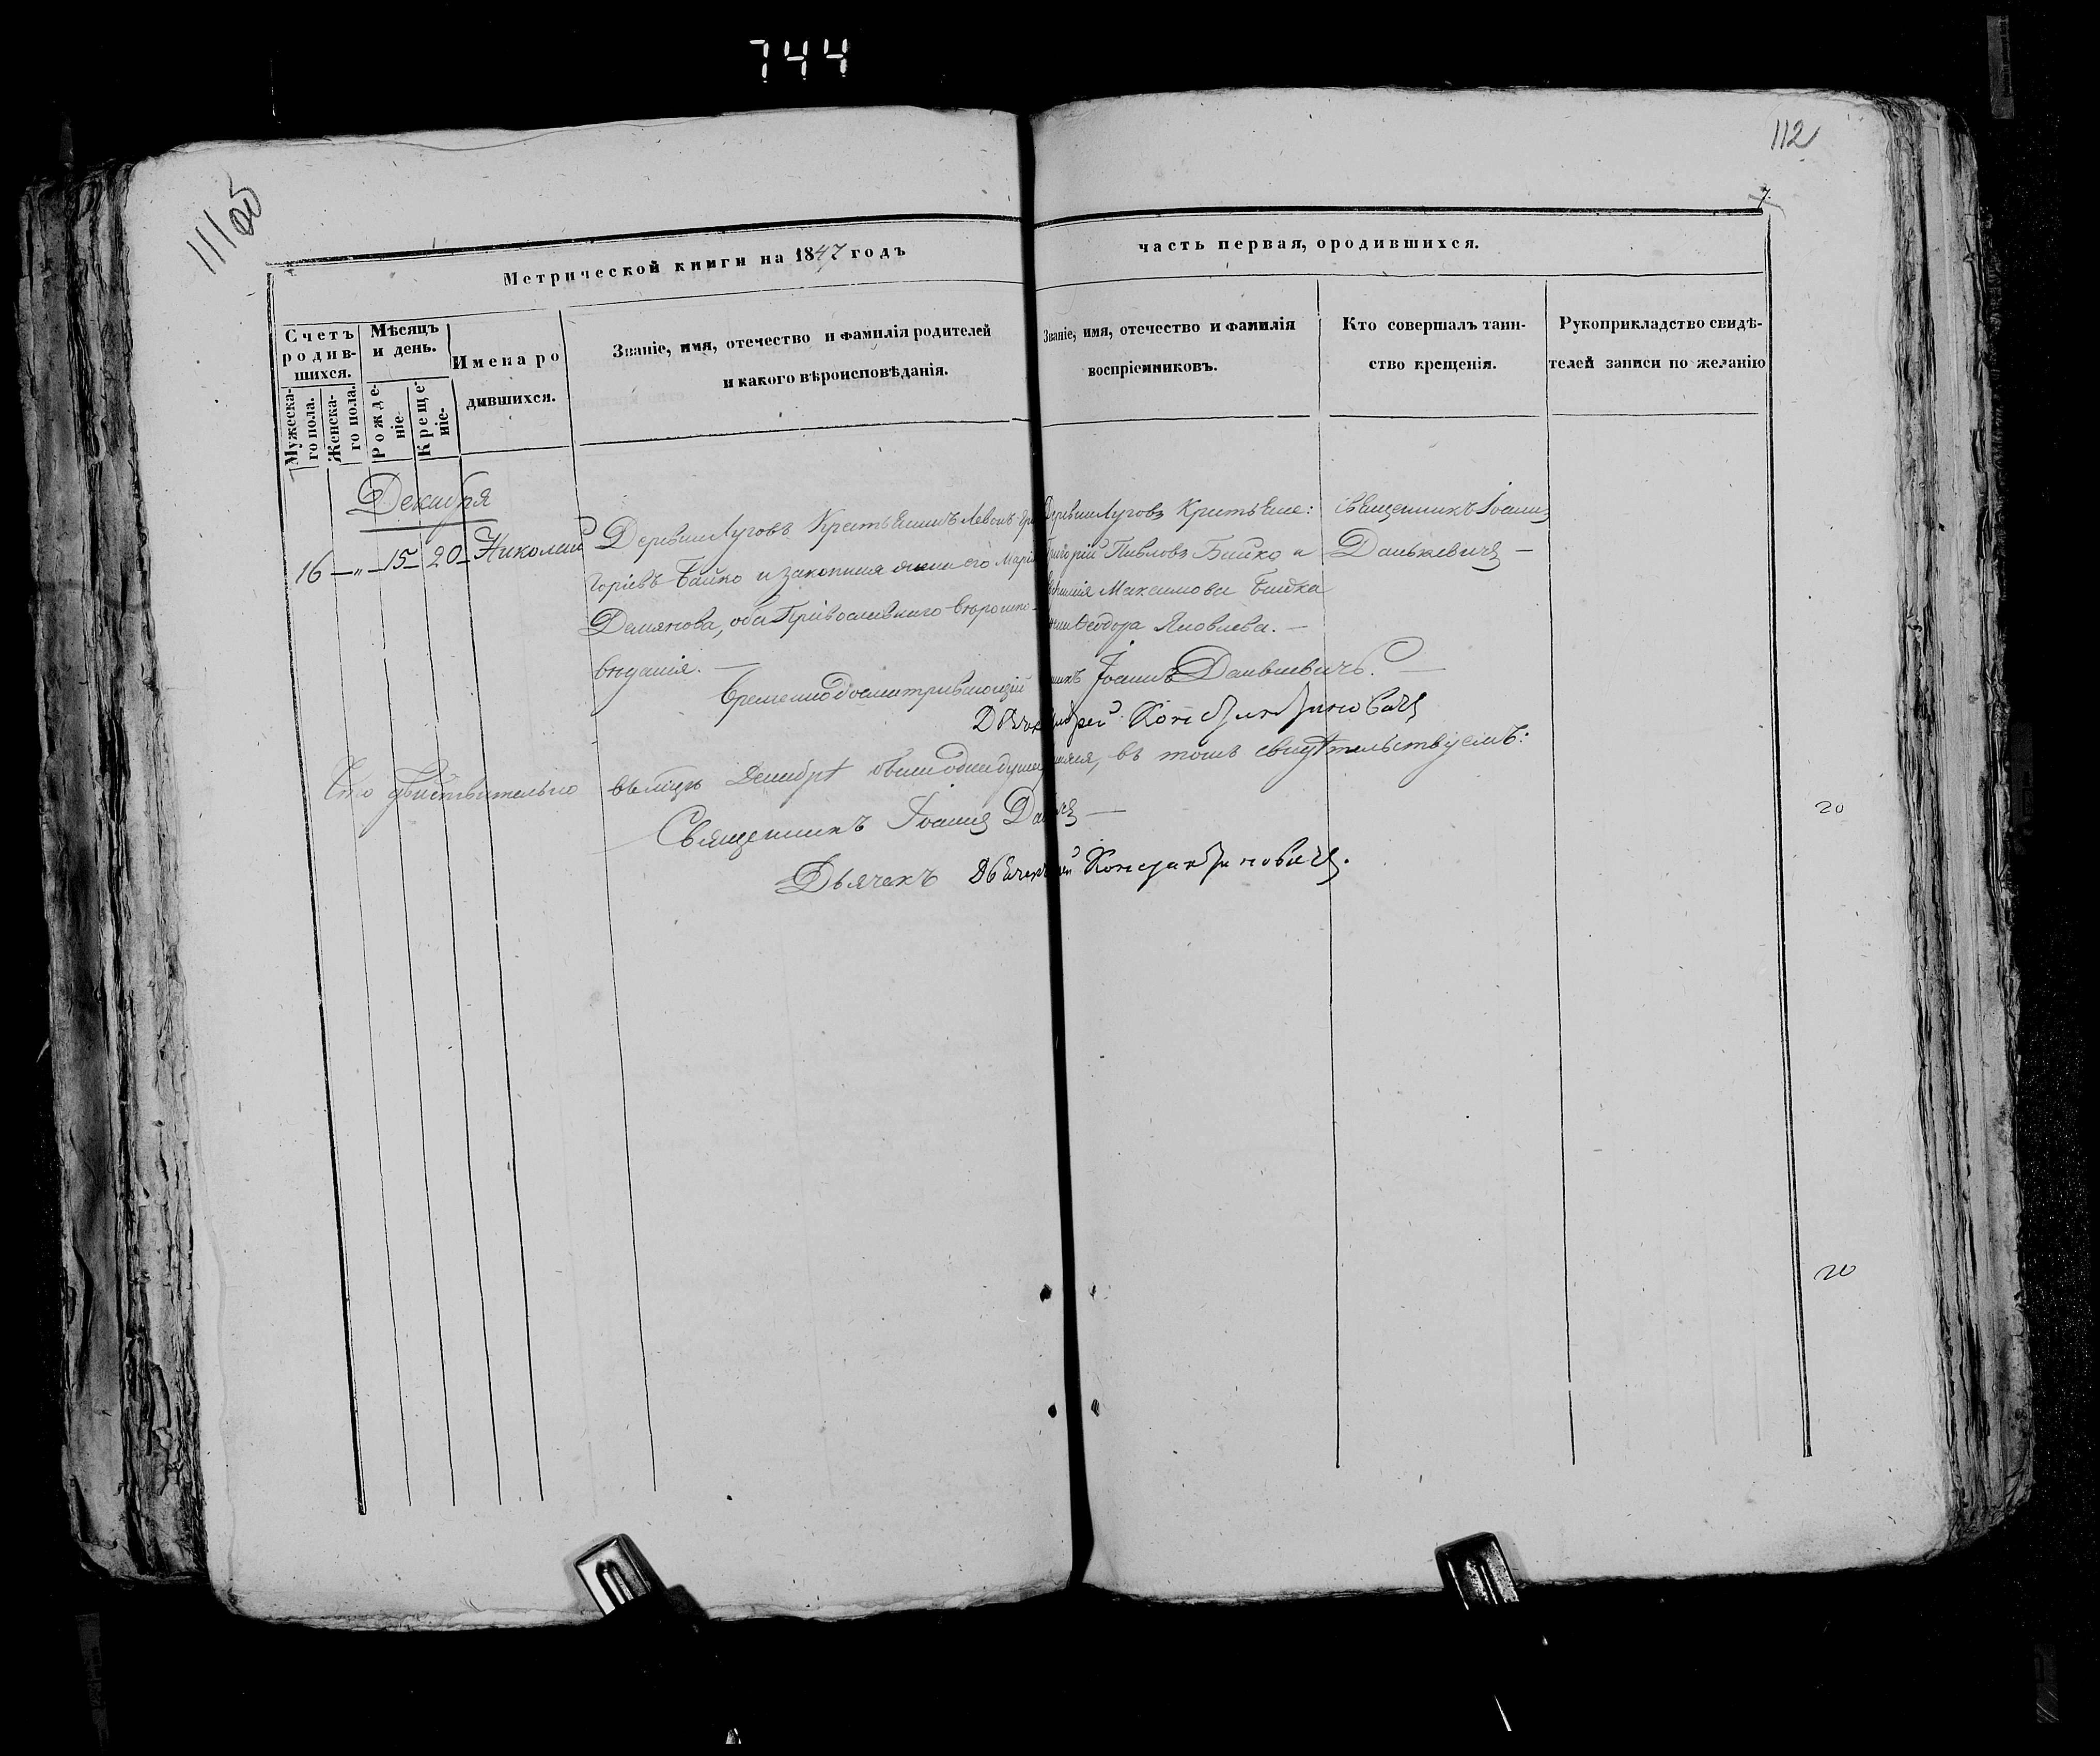 744
111об
112
7.
Метрической книги на 1847 годъ
часть первая, ородившихся.
Счетъ родив- шихся.
Мѣсяцъ и день.
Имена ро
дившихся.
Мужеска- го пола.
Женска- го пола.
Рожде- ніе.
Креще- ніе.
Званіе, имя, отечество и фамилія родителей
и какого вѣроисповѣданія.
Званіе, имя, отечество и фамилія
воспріемниковъ.
Кто совершалъ таин-
ство крещенія.
Рукоприкладство свидѣ-
телей записи по желанію
Декабря
16 — „ — 15 — 20 — Николай
Деревни Луговъ Крестьянинъ Левонъ Гри
горіевъ Байко и законная жена его Марія
Демянова, оба Православнаго вѣроиспо-
вѣданія. —
Деревни Луговъ Крестьяне:
Григорій Павловъ Байко и
Максимова Байка
Ѳеодора Яковлева. —
Священникъ Іоаннъ
Данкевичъ —
Временно досматривающій
Іоаннъ Данкевичъ. —
Константиновичъ
Что дѣйствительно въ мцѣ Декабрѣ
въ томъ свидѣтельствуемъ:
Священникъ Іоаннъ —
Дьячекъ Константиновичъ.
20
20